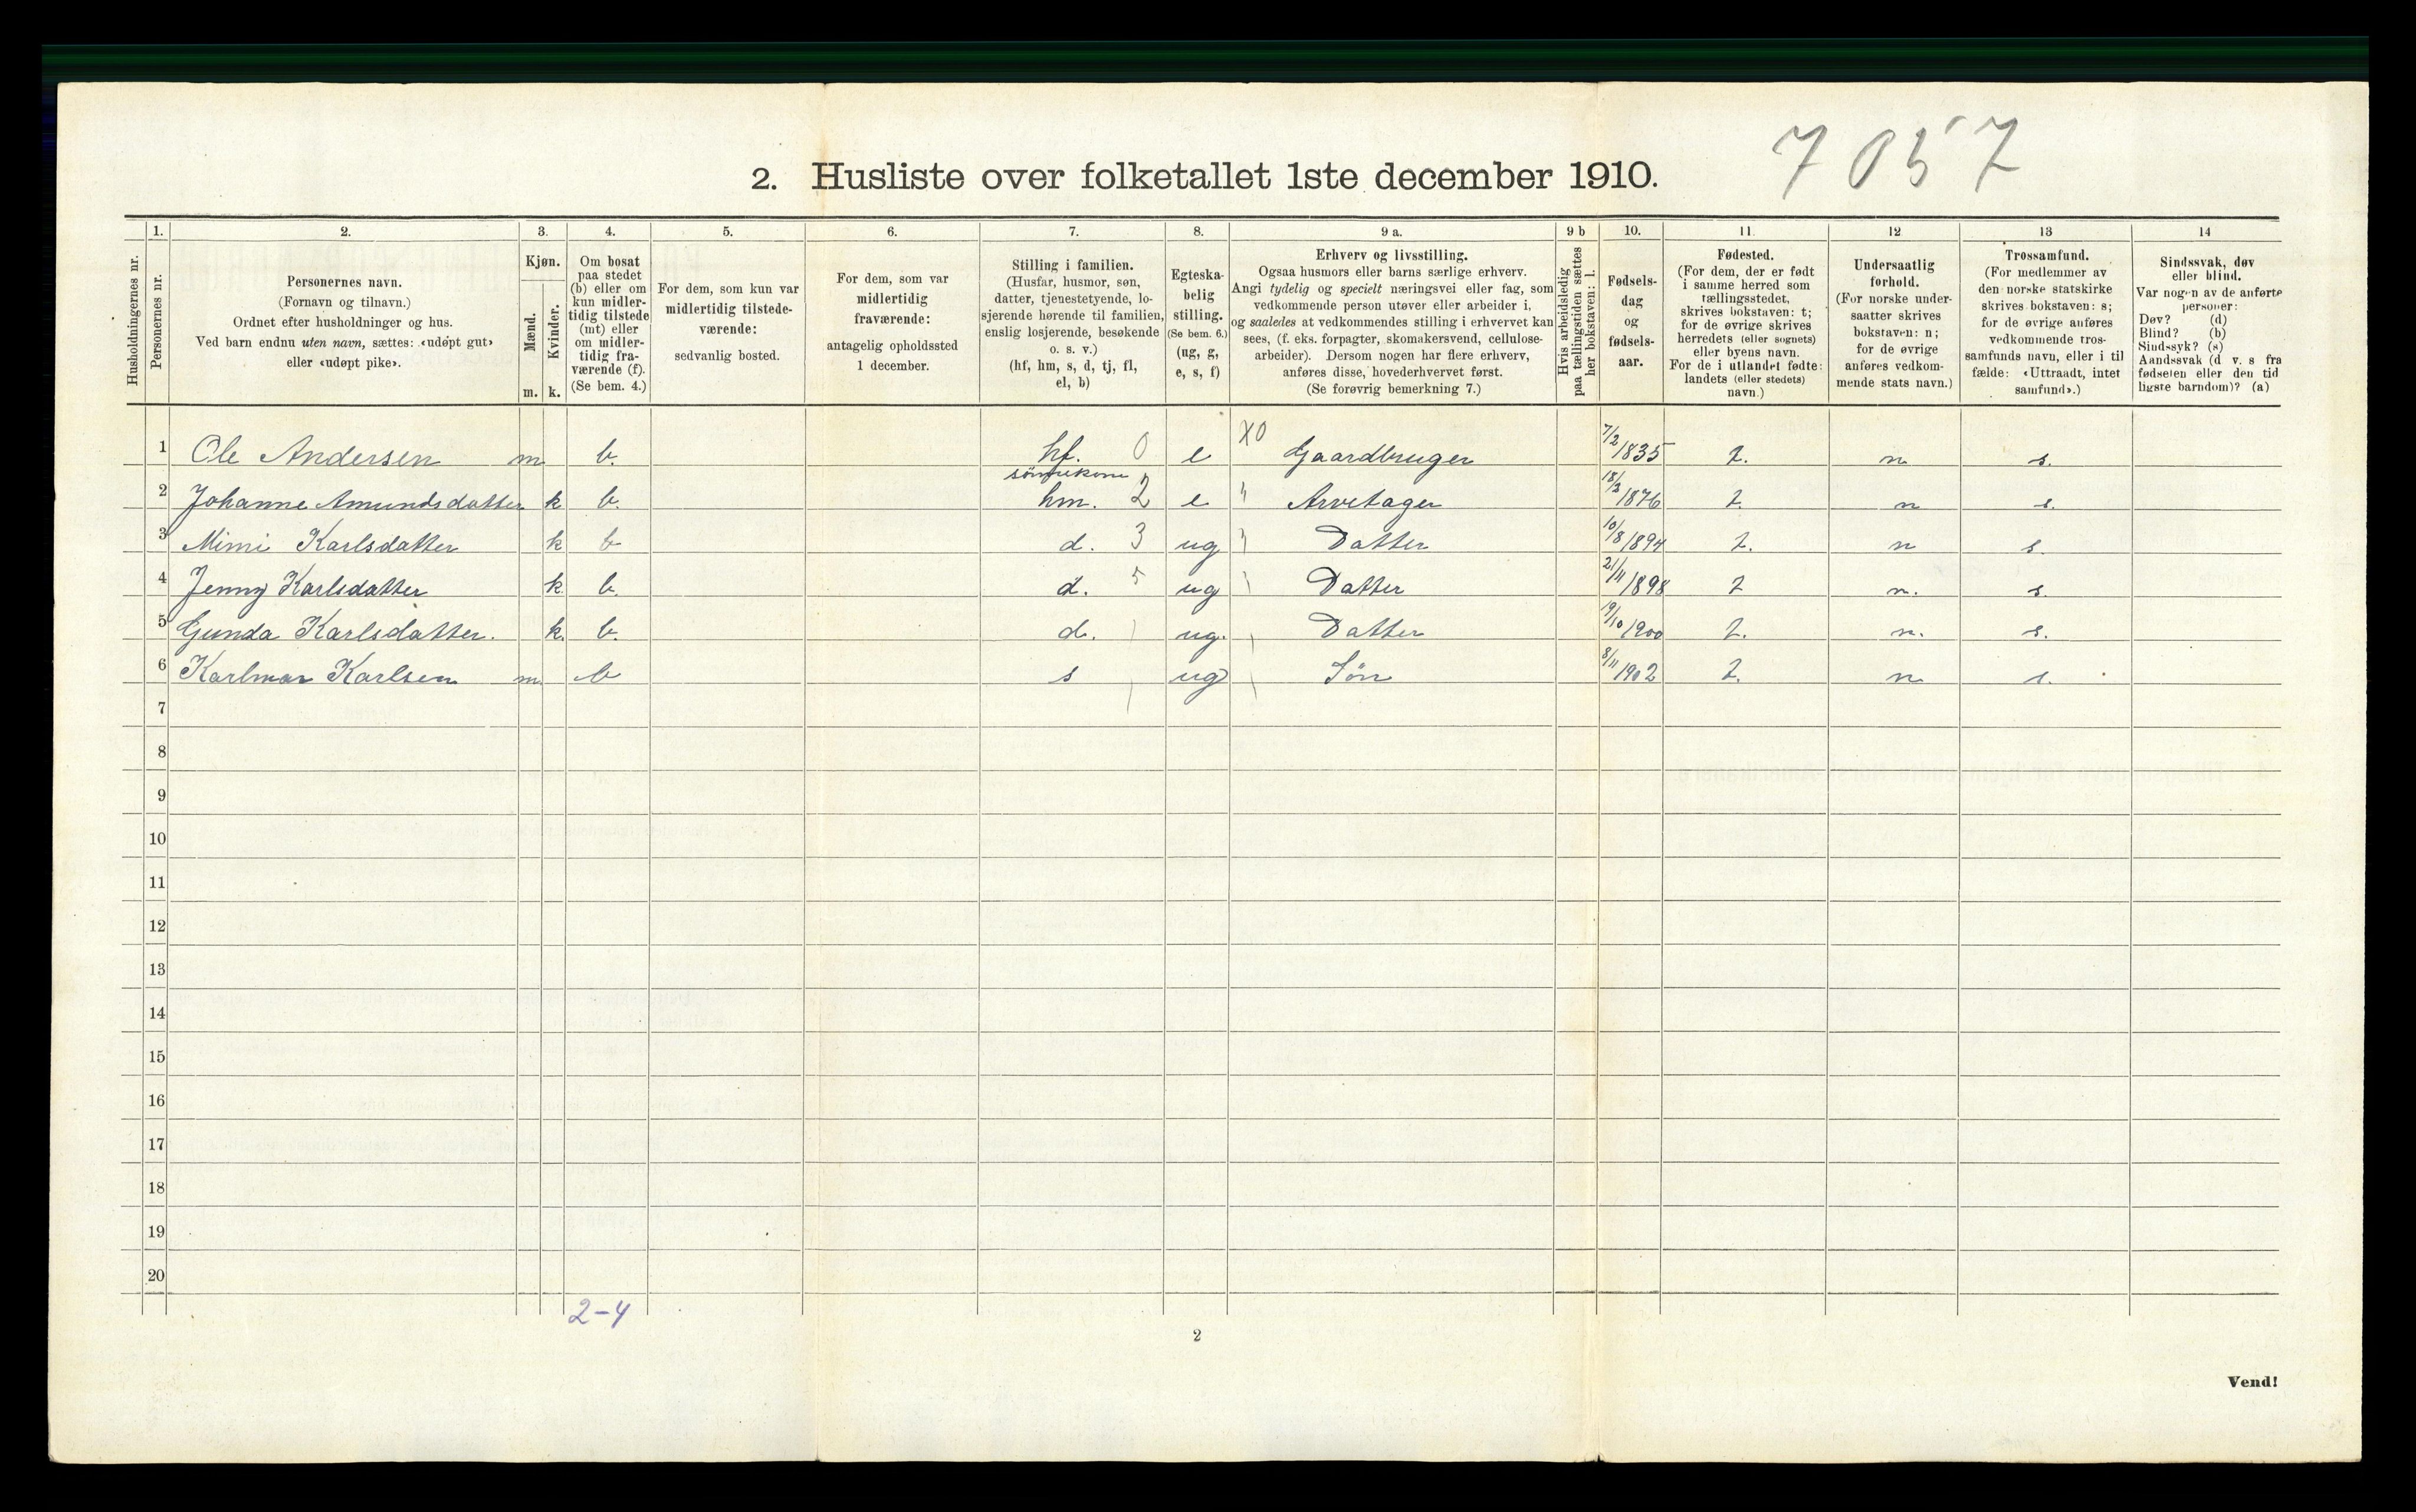 7057
2. Husliste over folketallet 1ste december 1910.
Husholdningernes nr.
1.
Personernes nr.
2.
Personernes navn.
(Fornavn og tilnavn.)
Ordnet efter husholdninger og hus.
Ved barn endnu uten navn, sættes: «udøpt gut»
eller «udøpt pike».
3.
Kjøn.
Mænd.
Kvinder.
m. k.
4.
Om bosat
paa stedet
(b) eller om
kun midler-
tidig tilstede
(mt) eller
om midler-
tidig fra-
værende (f).
(Se bem. 4.)
5.
For dem, som kun var
midlertidig tilstede-
værende:
sedvanlig bosted.
6.
For dem, som var
midlertidig
fraværende:
antagelig opholdssted
1 december.
7.
Stilling i familien.
(Husfar, husmor, søn,
datter, tjenestetyende, lo-
sjerende hørende til familien,
enslig losjerende, besøkende
o. s. v.)
(hf, hm, s, d, tj, fl,
el, b)
8.
Egteska-
belig
stilling.
(Se bem. 6.)
(ug, g,
e, s, f)
9 a.
Erhverv og livsstilling.
Ogsaa husmors eller barns særlige erhverv.
Angi tydelig og specielt næringsvei eller fag, som
vedkommende person utøver eller arbeider i,
og saaledes at vedkommendes stilling i erhvervet kan
sees, (f. eks. forpagter, skomakersvend, cellulose-
arbeider). Dersom nogen har flere erhverv,
anføres disse, hovederhvervet først.
(Se forøvrig bemerkning 7.)
9 b
Hvis arbeidsledig
paa tællingstiden sættes
her bokstaven: l.
10.
Fødsels-
dag
og
fødsels-
aar.
11.
Fødested.
(For dem, der er født
i samme herred som
tællingsstedet,
skrives bokstaven: t;
for de øvrige skrives
herredets (eller sognets)
eller byens navn.
For de i utlandet fødte:
landets (eller stedets)
navn.)
12
Undersaatlig
forhold.
(For norske under-
saatter skrives
bokstaven: n;
for de øvrige
anføres vedkom-
mende stats navn.)
13
Trossamfund.
(For medlemmer av
den norske statskirke
skrives bokstaven: s;
for de øvrige anføres
vedkommende tros-
samfunds navn, eller i til
fælde: «Uttraadt, intet
samfund».)
14
Sindssvak, døv
eller blind.
Var nogen av de anførte
personer:
Døv? (d)
Blind? (b)
Sindssyk? (s)
Aandssvak (d v. s fra
fødselen eller den tid
ligste barndom)? (a)
1 Ole Andersen m b. hf. 0 e X0 Gaardbruger 7/2 1835 t. n s.
sønnekone
2 Johanne Amundsdatter k b. hm. 2 e " Arvetager 18/3 1876 t. n s.
3 Mimi Karlsdatter k b d. 3 ug " Datter 10/8 1894 t. n s.
4 Jenny Karlsdatter k b. d. 5 ug " Datter 21/11 1898 t n. s.
5 Gunda Karlsdatter. k. b. d. ug. Datter 9/10 1900 t. n. s.
6 Karlmar Karlsen m b s ug Søn 8/11 1902 t. n s.
7
8
9
10
11
12
13
14
15
16
17
18
19
20
2-4
2
Vend!